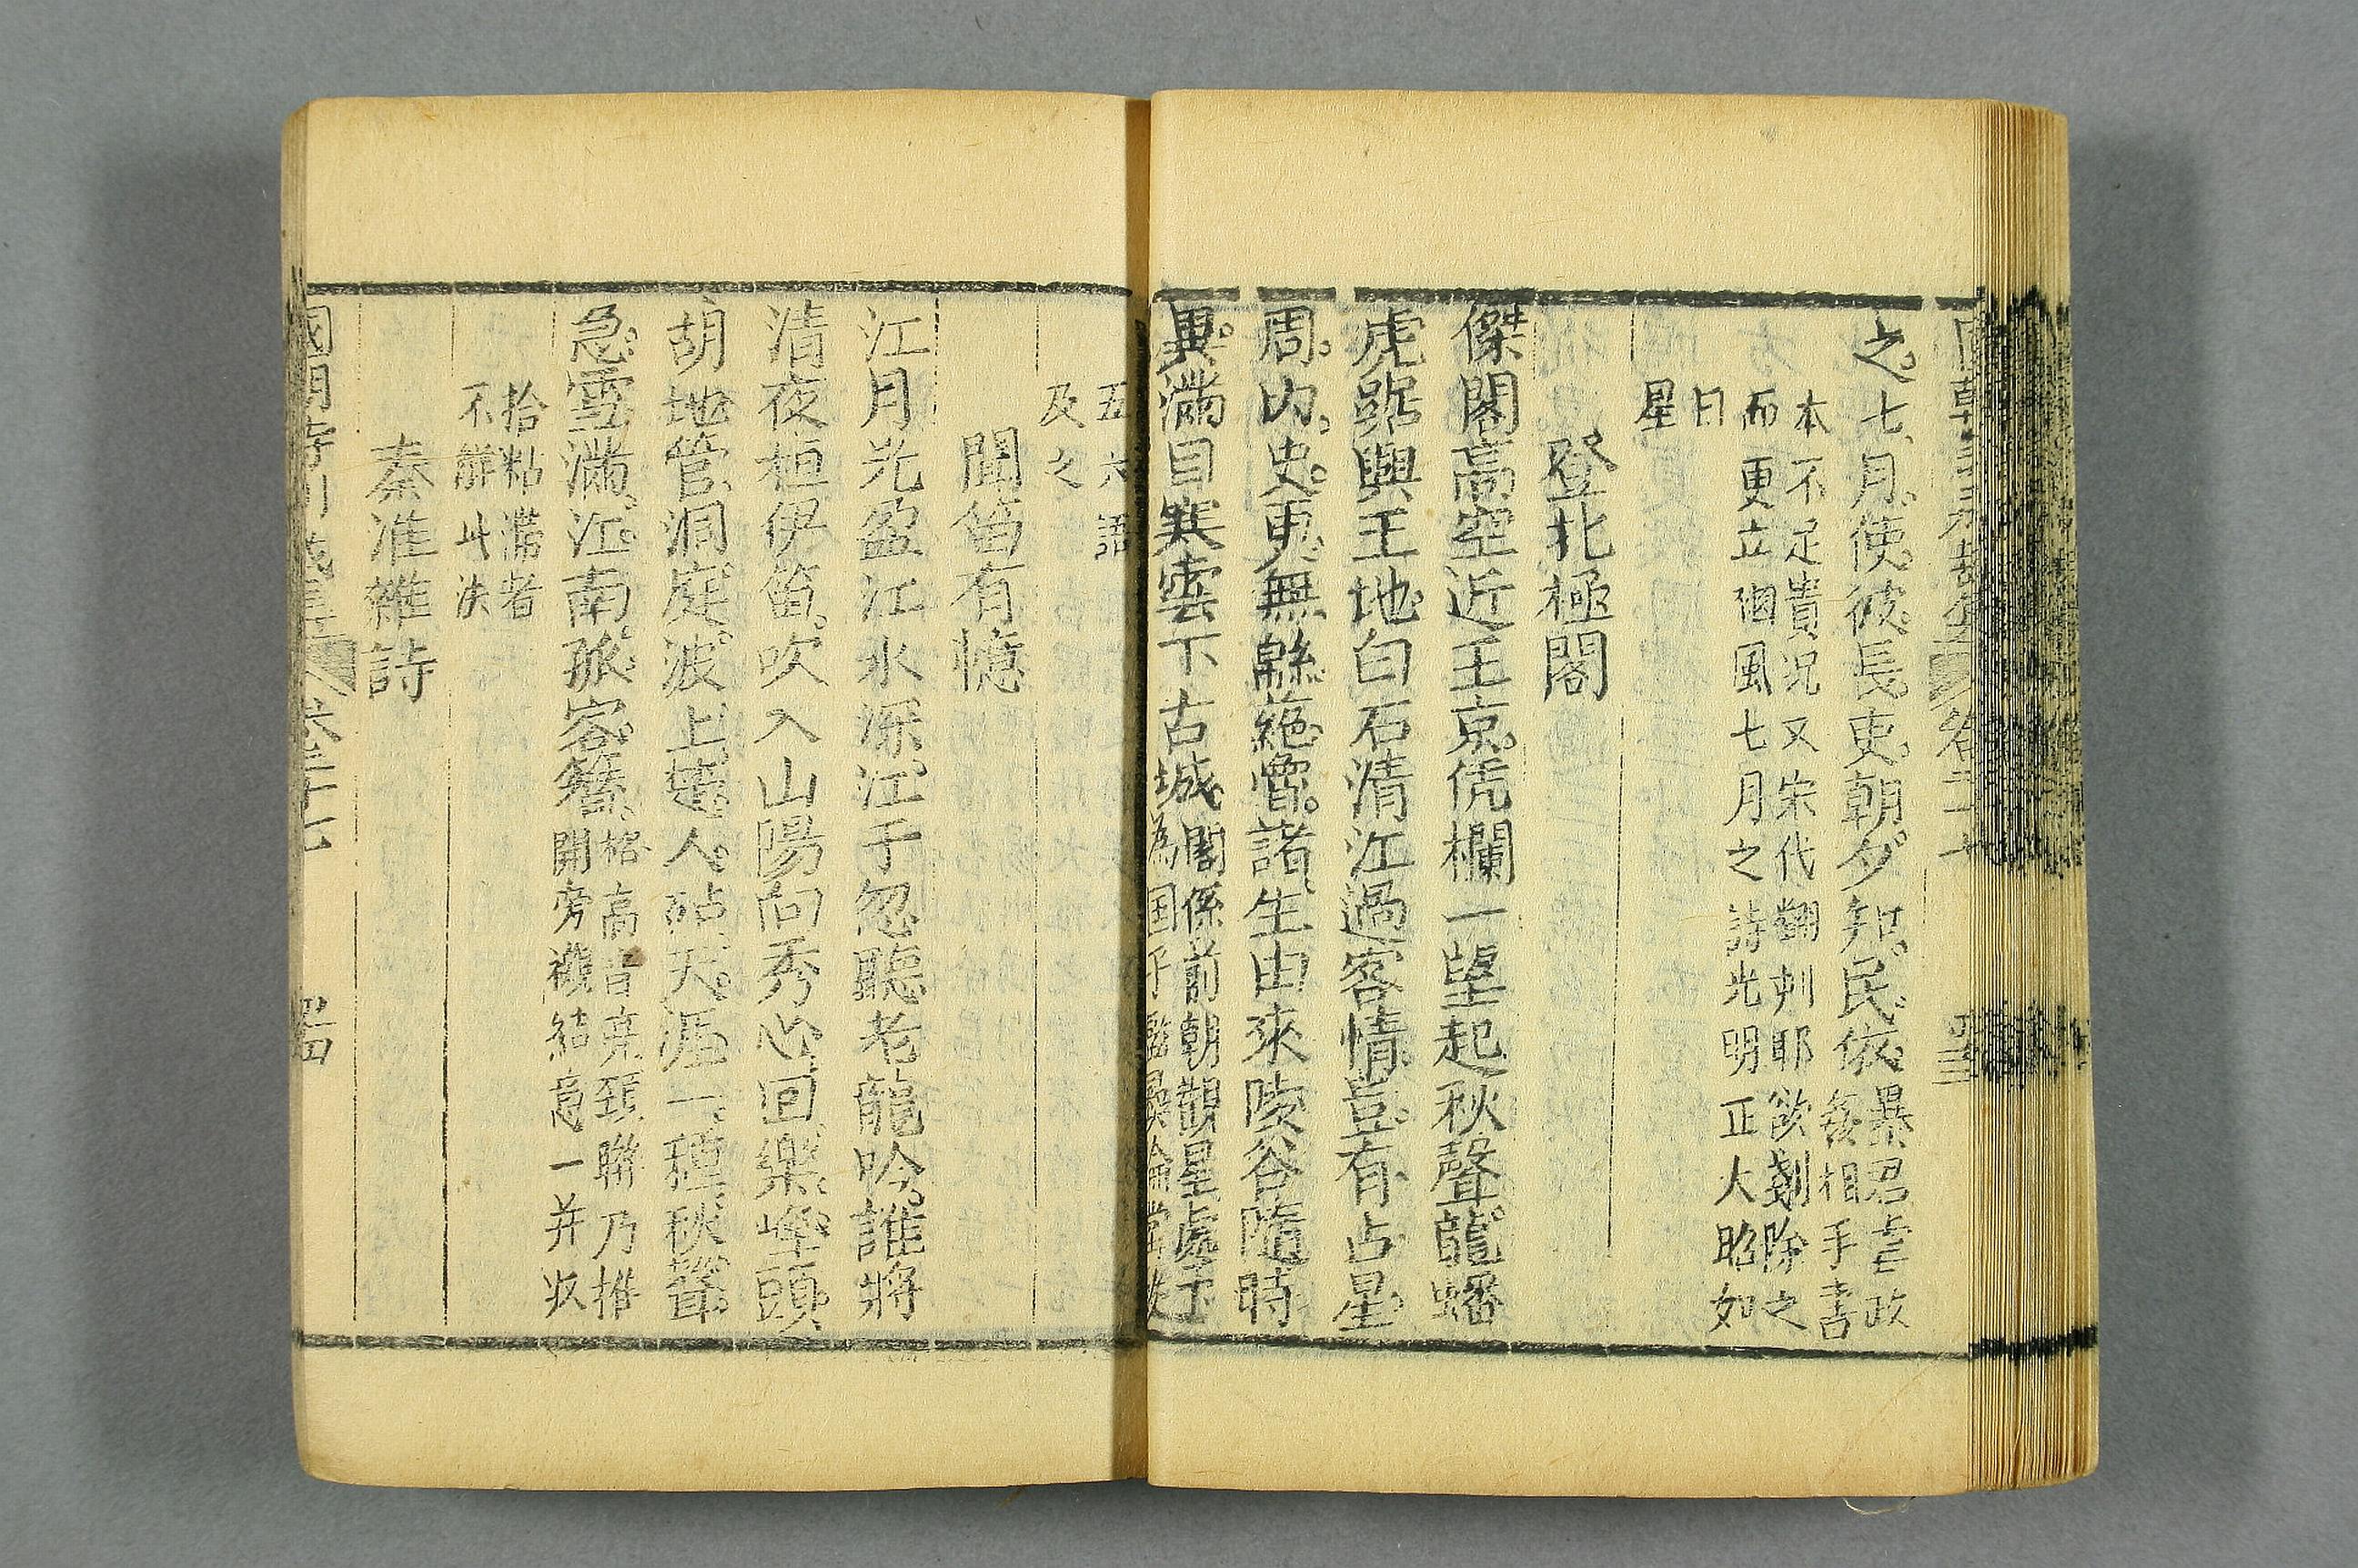 之七月使彼長吏朝夕知民依暴君虐政
姦相手書
本不足貴況又宋代翻刊耶欲剗除之
而更立個風七月之詩光明正大昭如
日
星
登北極閣
傑閣高空近王京凭欄一望起秋聲龍蟠
虎踞興王地白石清江過客情豈有占星
周內史更無綿蕝魯諸生由來陵谷隨時
異滿目寒雲下古城閣係前朝觀星處下
為国子監
五六語
及之
聞笛有憶
江月光盈江水深江于忽聽老龍吟誰將
清夜桓伊笛吹入山陽向秀心回樂峰頭
胡地管洞庭波上楚人砧天涯一種秋聲
急雪滿江南孤客簪格高音亮頸聯乃推
開旁襯結意一并收
拾粘滯者
不解此決
秦淮雜詩